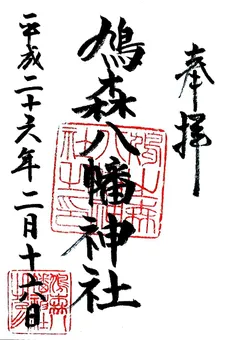 奉拝
鳩森八幡神社
平成二十六年二月十六日